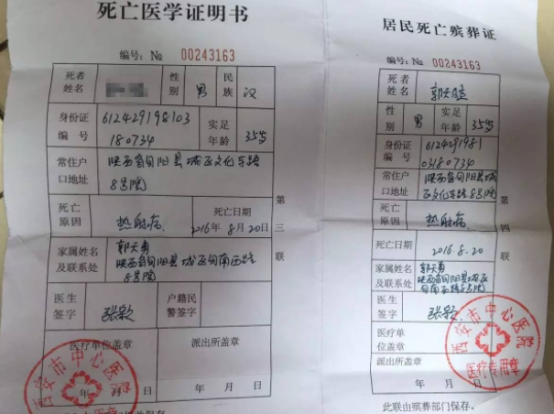 死亡医学证明书
编号：№ 00243163
死者姓名
性别 男 民族 汉
身份证编号 612429198103180734 实足年龄 35岁
常住户口地址 陕西省旬阳县城区文化东路8号院
死亡原因 热射病 死亡日期 2016年8月20日
家属姓名及联系处 郭天勇
陕西省旬阳县城区旬南西路8号院
医生签字 户籍民警签字
医疗单位盖章 派出所盖章
年 月 日 年 月 日
西安市中心医院
第三联
居民死亡殡葬证
编号：№ 00243163
死者姓名
性别 男 实足年龄 35岁
身份证编号 612429198103180734
常住户口地址 陕西省旬阳县城区文化东路8号院
死亡原因 热射病
死亡日期 2016.8.20
家属姓名及联系处 郭天勇
陕西省旬阳县城区
医生签字
医疗单位盖章
派出所盖章
年 月 日
西安市中心医院
医疗专用章
第四联
此联由殡葬部门保存。